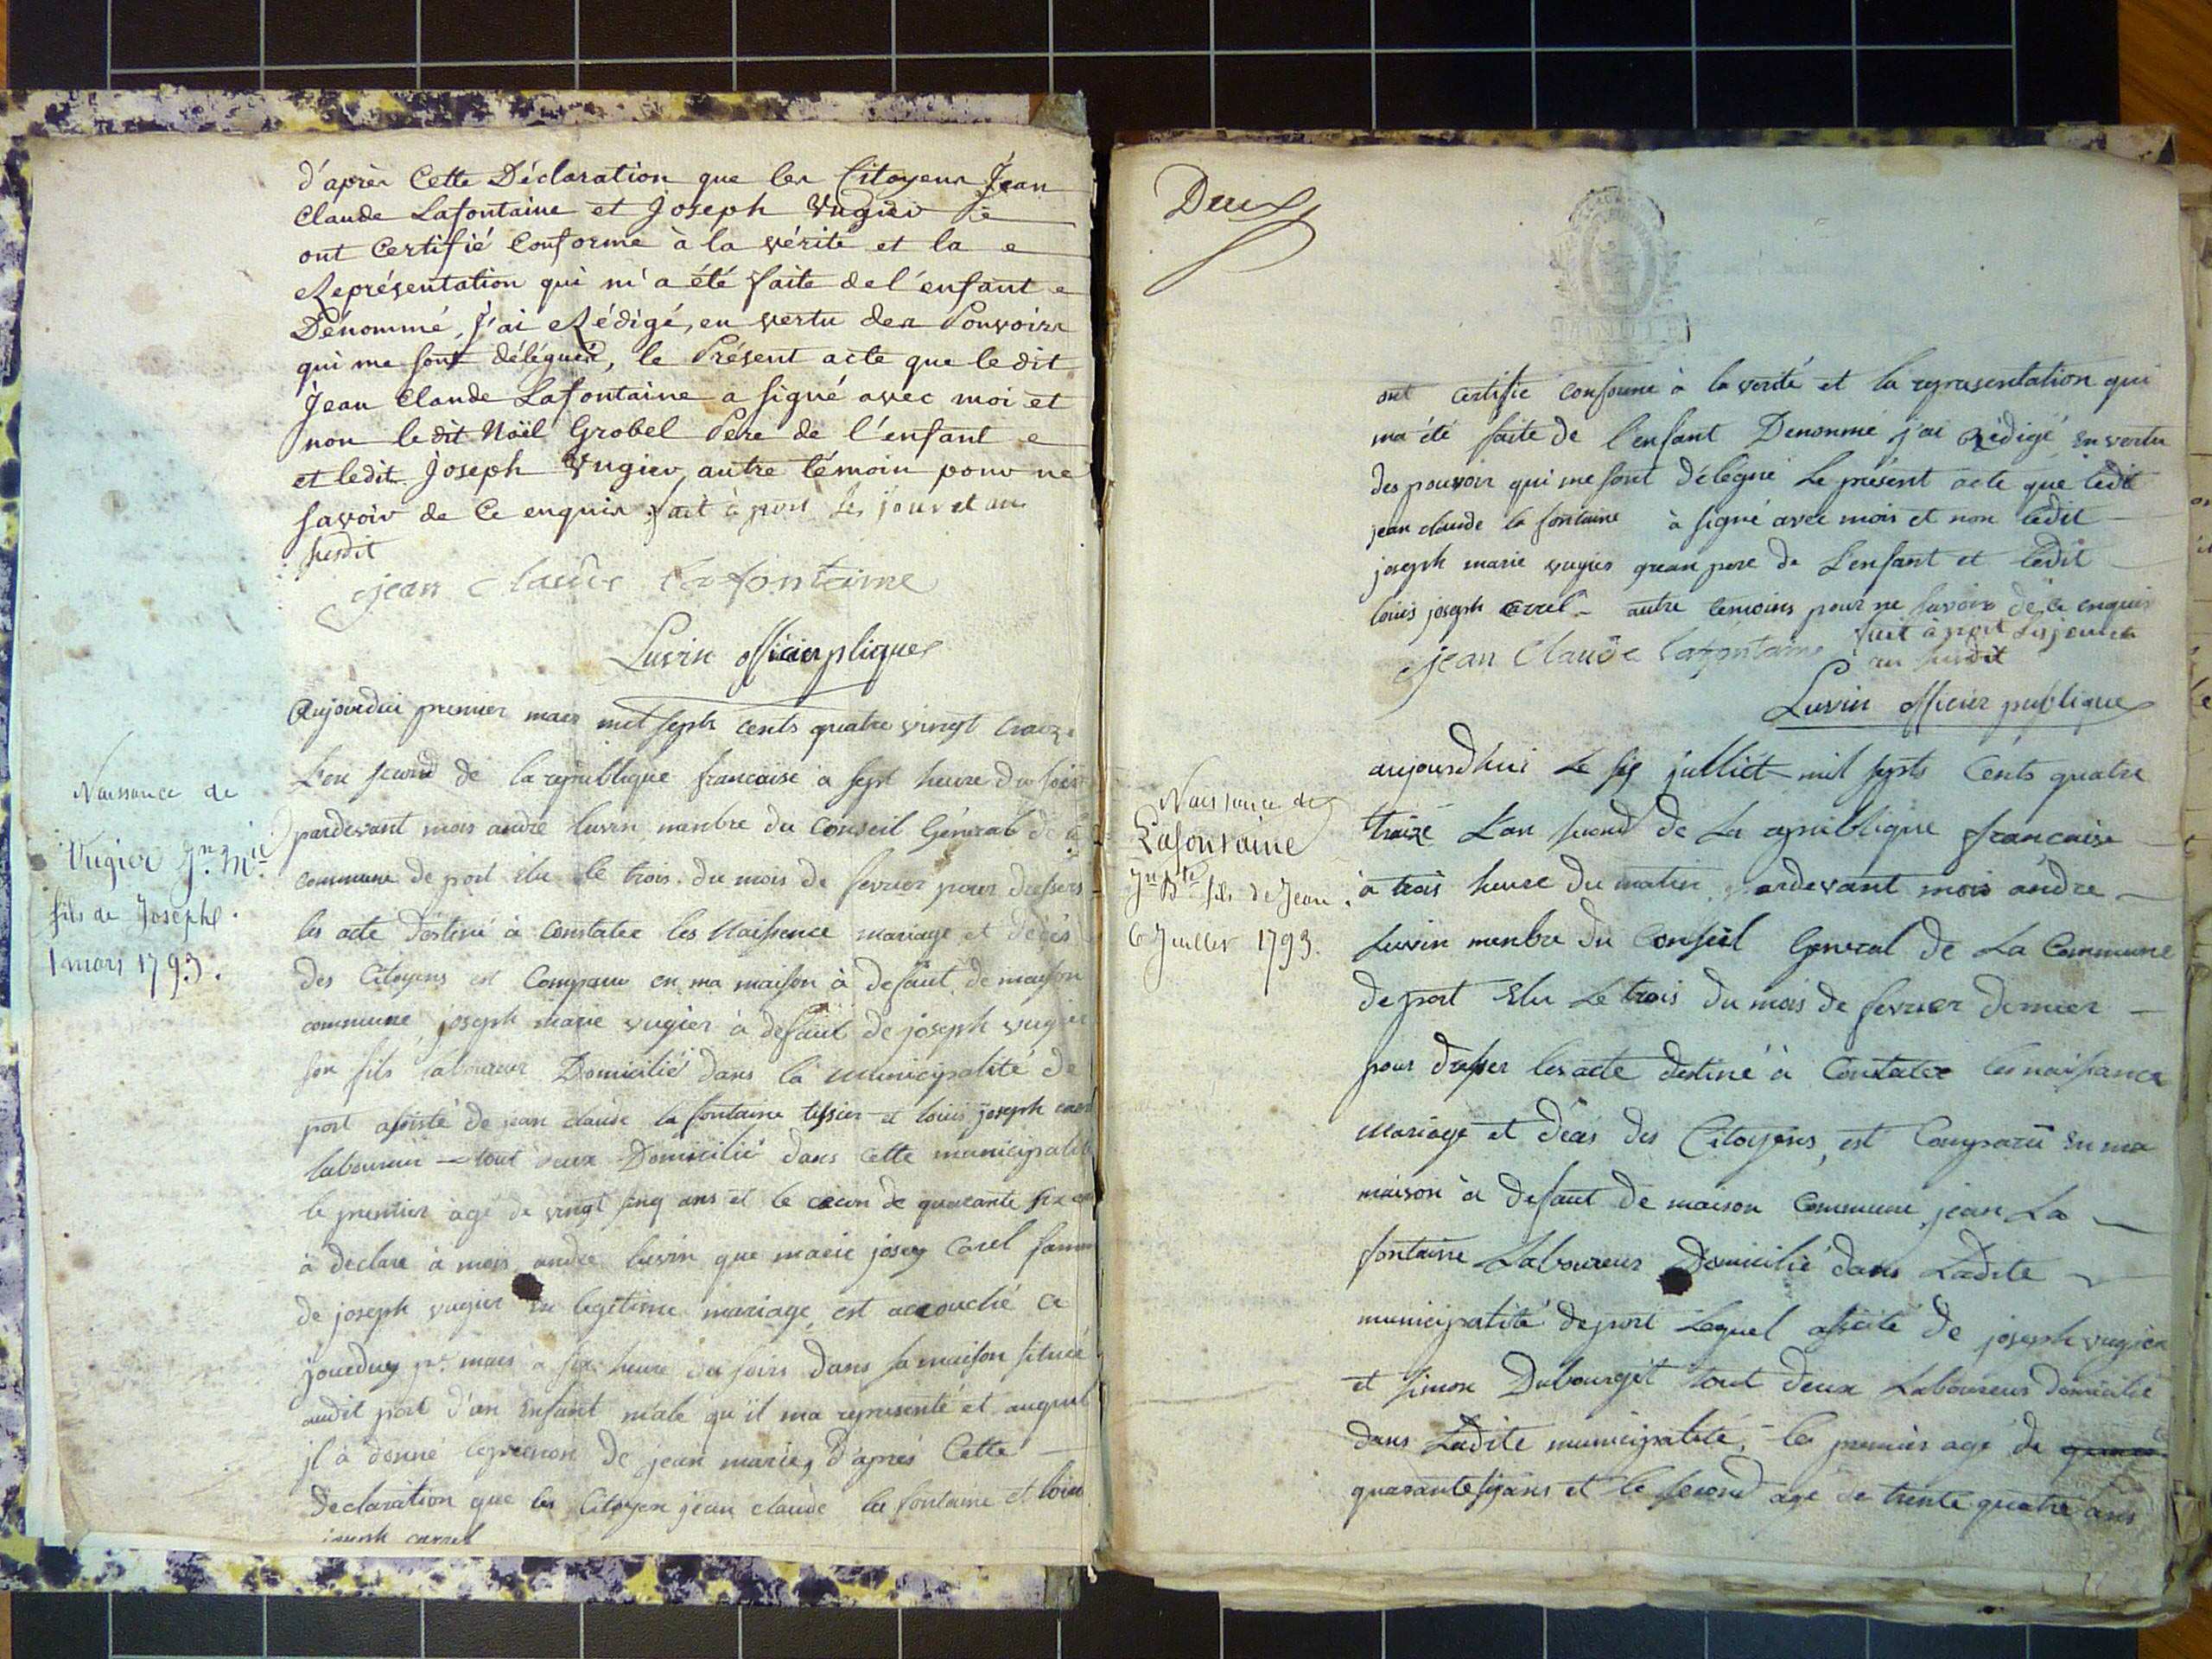 d'après Cette Déclaration que les Citoyens Jean
Claude Lafontaine et Joseph Vugier
ont Certifié Conforme à la vérité et la
Représentation qui m'a été faite de l'enfant
Dénommé, j'ai Rédigé, en vertu des Pouvoirs
qui me sont délégués, le Présent acte que le dit
Jean Claude Lafontaine a signé avec moi et
non le dit Noël Grobel Père de l'enfant
et ledit Joseph Vugier autre témoin pour ne
savoir de Ce enquis fait à port les jour et an
susdit
jean claude lafontaine
Luvin officier plique
Aujourdui premier mars mil sept cents quatre vingt traize
L'en second de la republique francaise a sept heure du soir
pardevant mois andre luvin menbre du Conseil Général de la
commune de port elu le trois du mois de fevrier pour dressers
les acte destiné à Constater les Naissence mariage et décès
des Citoyens est Comparu en ma maison à defaut de maison
commune, joseph marie vugier à defaut de joseph vugier
son fils laboureur Domicilié dans la municipalité de
port assisté de jean claude la fontaine tissier et louis joseph carrel
laboureur tout deux Domicilié dans Cette municipalité
le premier agé de vingt sinq ans et le cecon de quarante six ans
à declaré à mois andre luvin que marie josey Carel famme
de joseph vugier en legitime mariage, est accouché ce
jourduy pr. mars a six heure du soirs dans sa maison située
audit port d'un Enfant male qu'il ma representé et auquel
jl à donné leprenon de jean marie, d'aprés Cette
Declaration que les Citoyen jean claude la fontaine et louis
joseph carrel
Naissance de
Vugier Jn. Mie.
fils de Joseph.
1 mars 1793.
Deux
ont certifie conforme à la verité et la representation qui
ma été faite de l'enfant Denommé j'ai Rédigé en vertu
des pouvoir qui me sont délégué Le présent acte que ledit
jean claude la fontaine à signé avec mois et non ledit
joseph marie vugier grean pere de L'enfant et ledit
louis joseph carrel autre temoins pour ne savoir de ce enquis
fait à port les jour et
jean Claude lafontaine
an susdit
Luvin officier publique
aujourdhui Le six julliet mil septs Cents quatre
traize L'an second de La republique francaise
à trois heure du matin, pardevant mois andre
Luvin menbre du Conseil General de La Commune
de port Elu Le trois du mois de fevrier dernier
pour dresser les acte destiné à Constater les naissance
mariage et décès des Citoyens, est Comparu En ma
maison a defaut de maison Commune, jean La
fontaine Laboureur Domicilié dans Ladite
municipalité de port Lequel assité de joseph vugier
et simon Dubourgit tout deux Laboureur domicilié
dans Ladite municipalité, le premier agé de
quarante six ans et le second agé de trente quatre ans
Naissance de
Lafontaine
Jn Bte fils de Jean.
6 Juillet 1793.